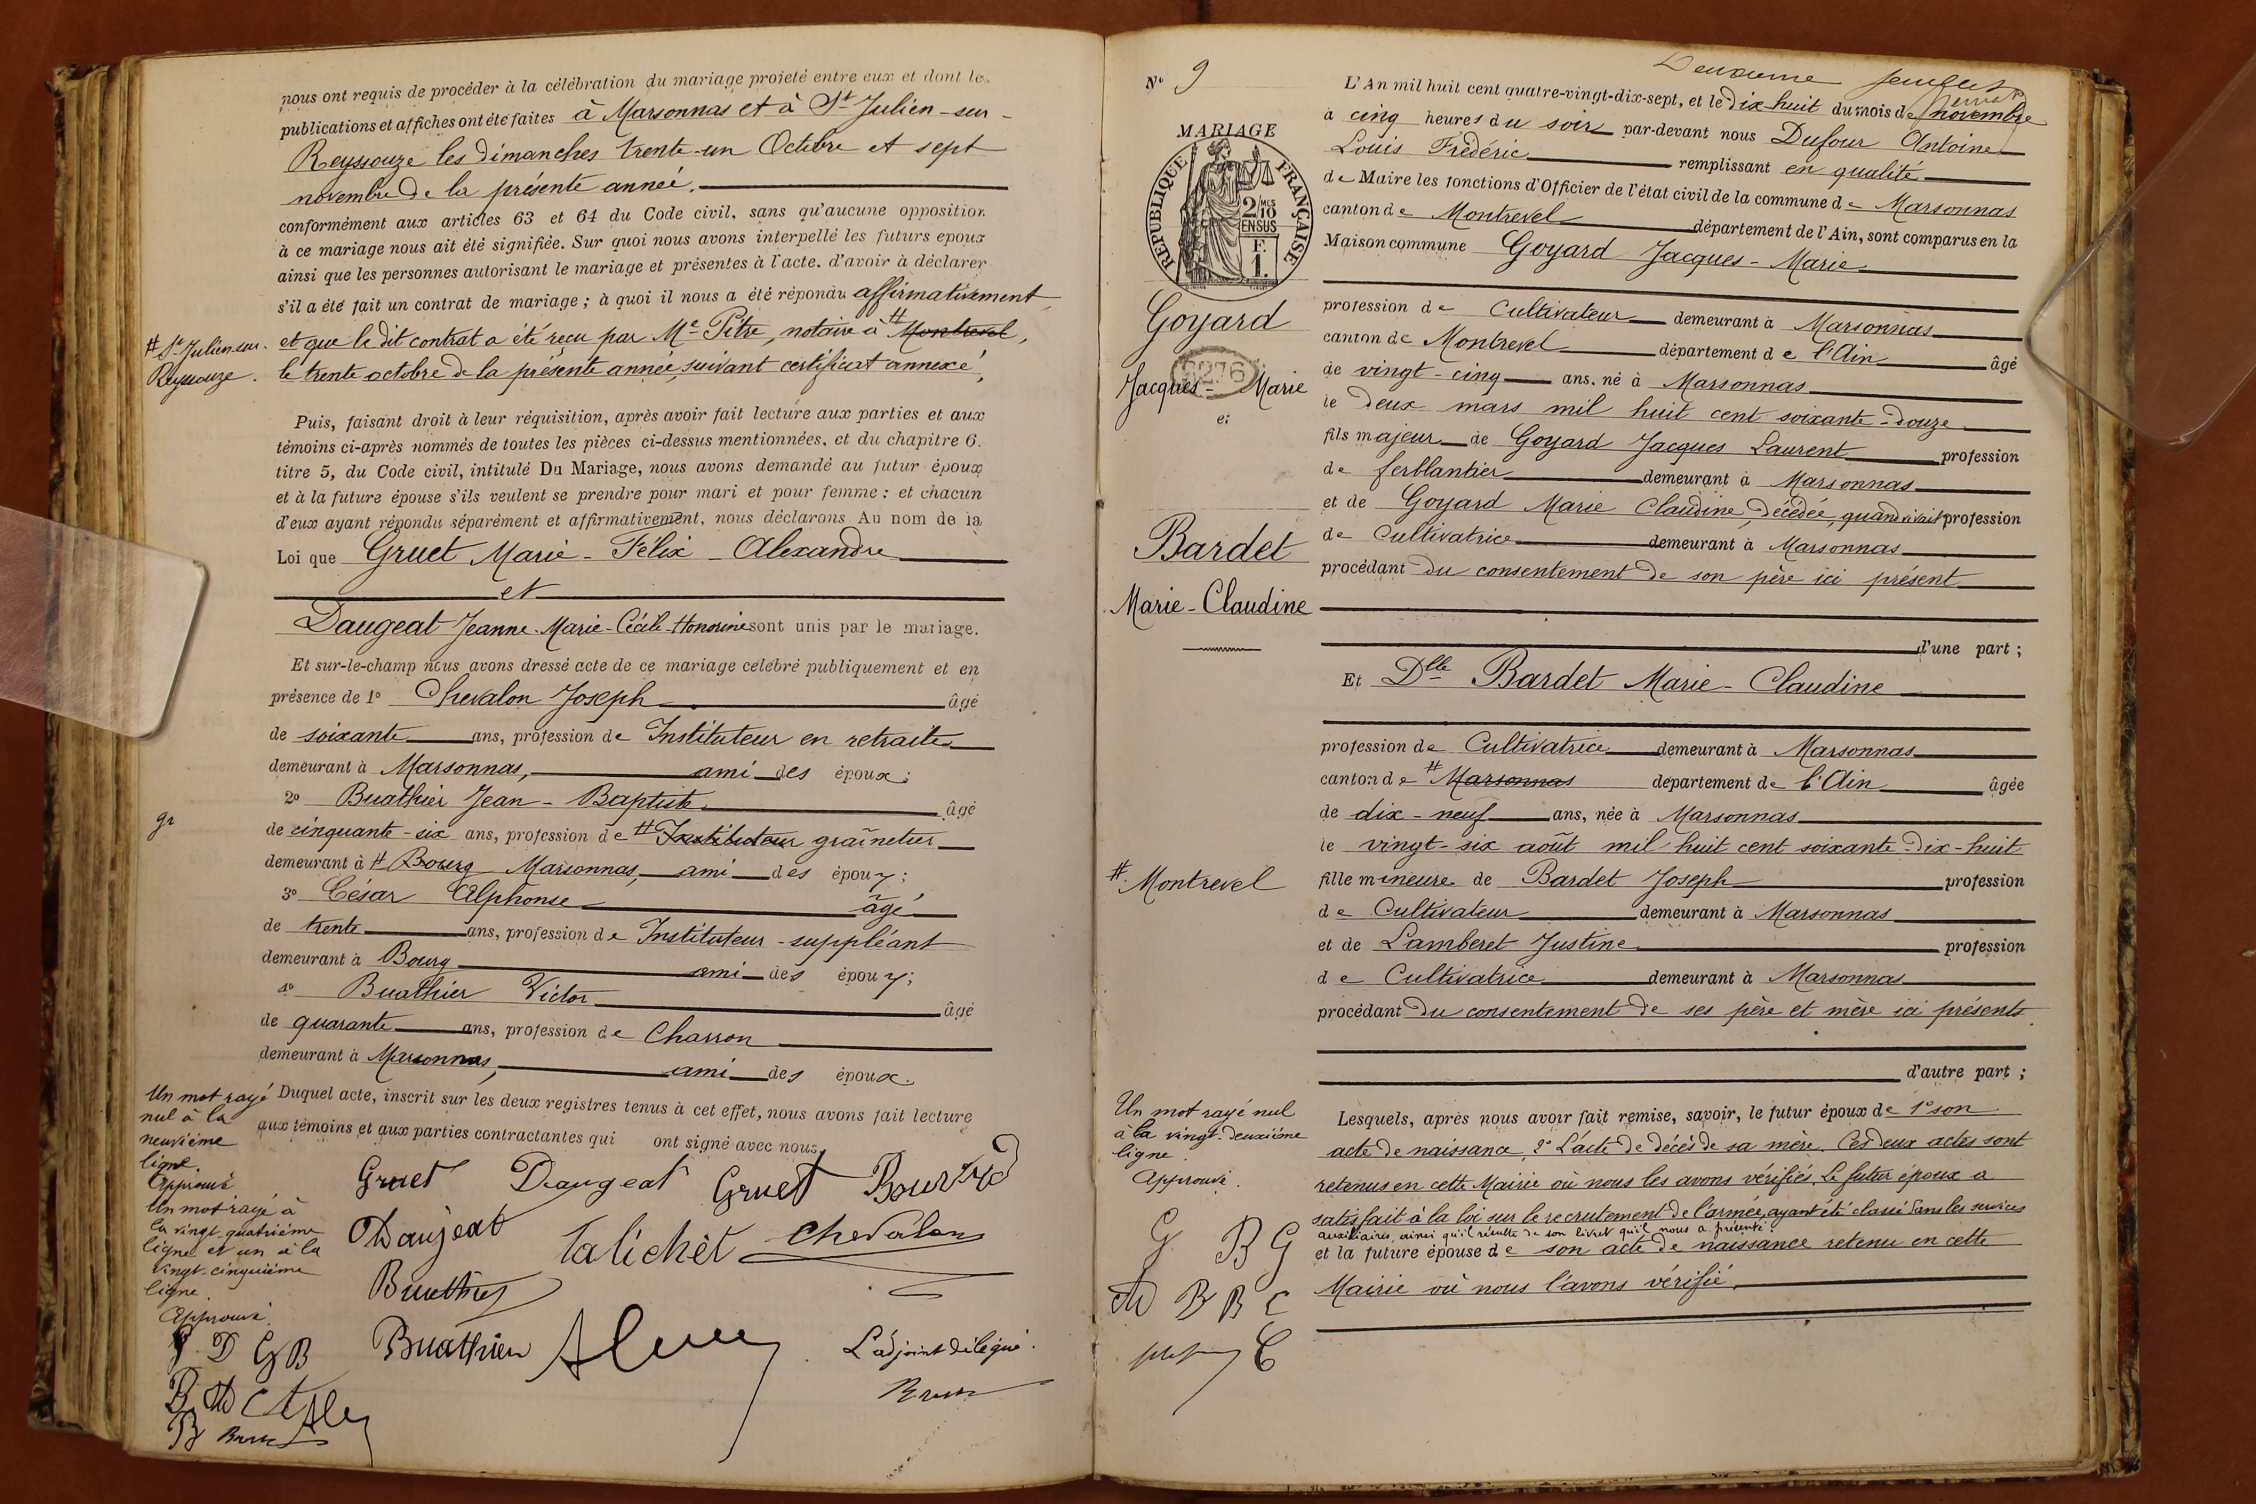 nous ont requis de procéder à la célébration du mariage projeté entre eux et dont les
publications et affiches ont été faites à Marsonnas et à St Julien-sur-
Reyssouze les dimanches trente-un Octobre et sept
novembre de la présente année.
conformément aux articles 63 et 64 du Code civil, sans qu'aucune opposition
à ce mariage nous ait été signifiée. Sur quoi nous avons interpellé les futurs epoux
ainsi que les personnes autorisant le mariage et présentes à l'acte. d'avoir à déclarer
s'il a été fait un contrat de mariage ; à quoi il nous a été répondu affirmativement
et que le dit contrat a été reçu par Me Pitre, notaire à # Montrevel,
# St Julien sur.
Reyssouze.
le trente octobre de la présente année, suivant certificat annexé,
Puis, faisant droit à leur réquisition, après avoir fait lecture aux parties et aux
témoins ci-après nommés de toutes les pièces ci-dessus mentionnées. et du chapitre 6.
titre 5, du Code civil, intitulé Du Mariage, nous avons demandé au futur époux
et à la future épouse s'ils veulent se prendre pour mari et pour femme : et chacun
d'eux ayant répondu séparément et affirmativement, nous déclarons Au nom de la
Loi que Gruet Marie-Félix-Alexandre
et
Daugeat Jeanne-Marie-Cécile-Honorine sont unis par le mariage.
Et sur-le-champ nous avons dressé acte de ce mariage célébré publiquement et en
présence de 1º Chevalon Joseph âgé
de soixante ans, profession de Instituteur en retraite
demeurant à Marsonnas, ami des époux ;
2º Buathier Jean-Baptiste âgé
gr
de cinquante-six ans, profession de # Instituteur graînetier
demeurant à # Bourg Marsonnas, ami des époux ;
3º César Alphonse âgé
de trente ans, profession de Instituteur-suppléant
demeurant à Bourg ami des époux ;
4º Buathier Victor âgé
de quarante ans, profession de Charron
demeurant à Marsonnas, ami des époux.
Duquel acte, inscrit sur les deux registres tenus à cet effet, nous avons fait lecture
aux témoins et aux parties contractantes qui ont signé avec nous
Un mot rayé
nul à la
neuvième
ligne.
Approuvé
Un mot rayé à
la vingt-quatrième
ligne et un à la
vingt-cinquième
ligne.
Approuvé.
Gruet Daugeat Gruet
Daujeat Talichet Chevalon
Buathier
Buathier
L'adjoint délégué.
G D G B
Nº 9
Deuxième feuillet
MARIAGE
RÉPUBLIQUE FRANÇAISE
2/10
MES
EN SUS
F.
1.
Goyard
6276
Jacques-Marie
et
Bardet
Marie-Claudine
L'An mil huit cent quatre-vingt-dix-sept, et le Dix-huit du mois de novembre
à cinq heures du soir par-devant nous Dufour Antoine
Louis Frédéric remplissant en qualité
de Maire les fonctions d'Officier de l'état civil de la commune de Marsonnas
canton de Montrevel département de l'Ain, sont comparus en la
Maison commune Goyard Jacques-Marie
profession de Cultivateur demeurant à Marsonnas
canton de Montrevel département de l'Ain âgé
de vingt-cinq ans. né à Marsonnas
le deux mars mil huit cent soixante-douze
fils majeur de Goyard Jacques Laurent profession
de ferblantier demeurant à Marsonnas
et de Goyard Marie Claudine, décédée, quand vivait profession
de Cultivatrice demeurant à Marsonnas
procédant du consentement de son père ici présent
d'une part ;
Et Dlle Bardet Marie-Claudine
profession de Cultivatrice demeurant à Marsonnas
canton de # Marsonnas département de l'Ain âgée
de dix-neuf ans, née à Marsonnas
le vingt-six août mil huit cent soixante-dix-huit
# Montrevel
fille mineure de Bardet Joseph profession
de Cultivateur demeurant à Marsonnas
et de Lamberet Justine profession
de Cultivatrice demeurant à Marsonnas
procédant du consentement de ses père et mère ici présents
d'autre part ;
Un mot rayé nul
à la vingt-deuxième
ligne.
Approuvé.
Lesquels, après nous avoir fait remise, savoir, le futur époux de 1º son
acte de naissance, 2º L'acte de décès de sa mère. Ces deux actes sont
retenus en cette Mairie où nous les avons vérifiés. Le futur époux a
satisfait à la loi sur le recrutement de l'armée, ayant été classé dans les services
auxiliaires, ainsi qu'il résulte de son livret qu'il nous a présenté.
et la future épouse de son acte de naissance retenu en cette
Mairie où nous l'avons vérifié.
G B G
B B C